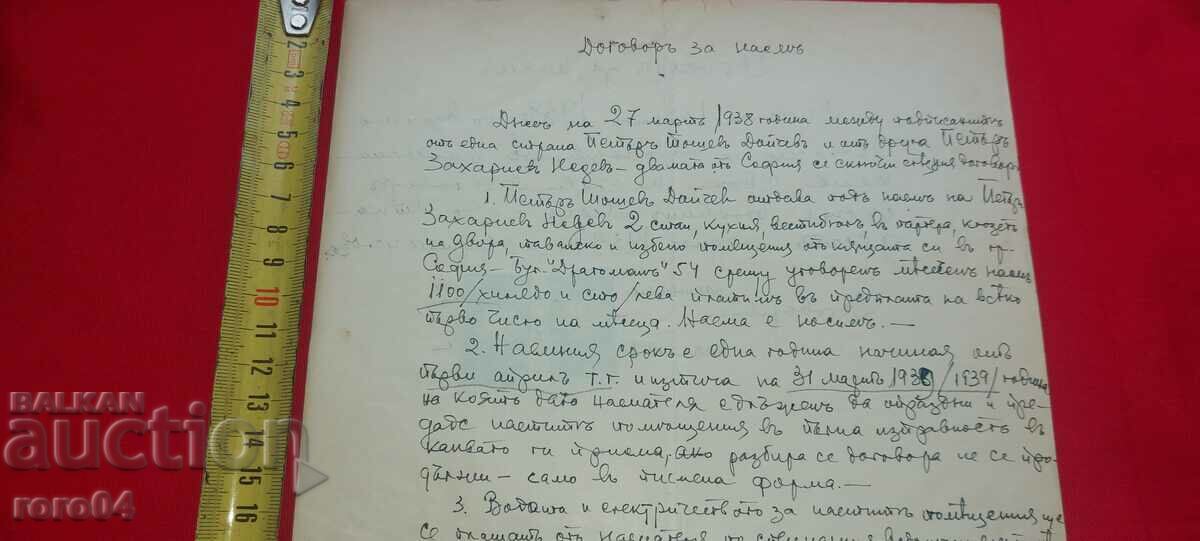 Договоръ за наемъ
Днесъ на 27 мартъ 1938 година между подписанитѣ
отъ една страна Петъръ Тошевъ Дайчевъ и отъ друга Петъръ
Захариев Недев - двамата отъ София се сключи следния договоръ
1. Петъръ Тошев Дайчев отдава подъ наемъ на Петъръ
Захариев Недев 2 стаи, кухня, вестибюлъ, въ партера, клозетъ
на двора, таванско и избено помещения отъ къщата си въ гр.
София - Бул. "Драгоманъ" 54 срещу уговоренъ месеченъ наемъ
1100/хилядо и сто/лева платимъ въ предплата на всѣко
първо число на месеца. Наема е носимъ. -
2. Наемния срокъ е една година начиная отъ
първи априлъ т.г. и изтича на 31 мартъ 1939/1939/година
на която дата наемателя е длъженъ да опраздни и пре-
даде наетитѣ помещения въ пълна изправность в
каквато ги приема, ако разбира се договора не се про-
дължи - само въ писмена форма. -
3. Водата и електричеството за наетитѣ помещения ще
се плащатъ отъ наемателя
2 3 4 5 6 7 8 9 10 11 12 13 14 15 16
BALKAN
auction
roro04